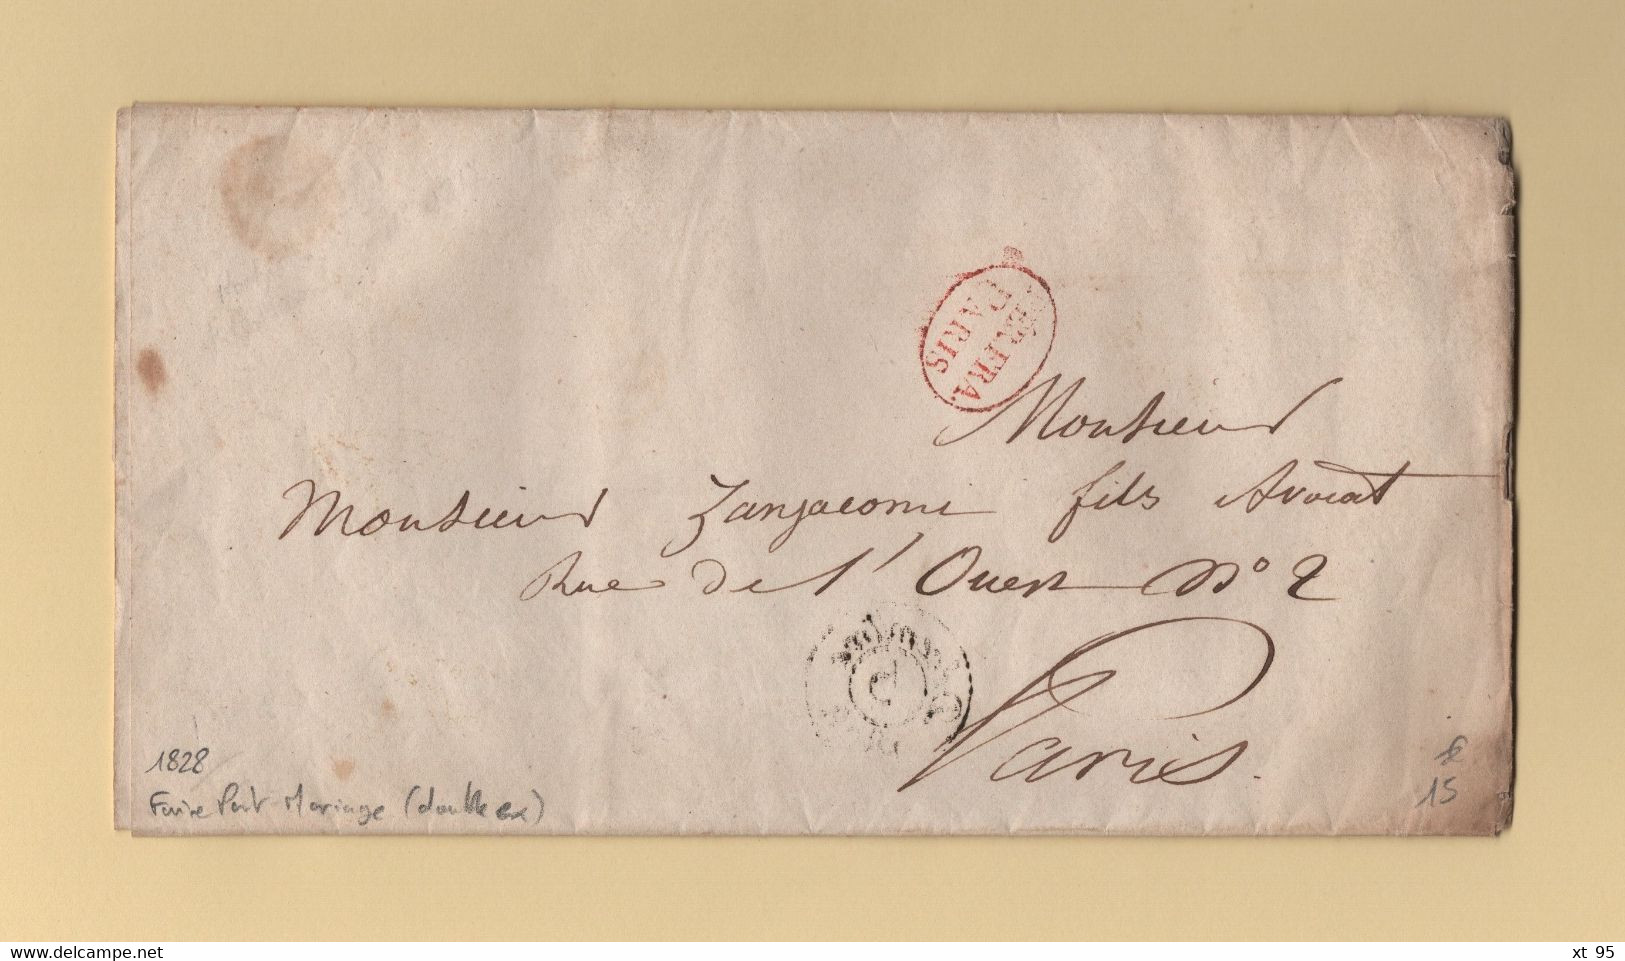 AFFRA.
PARIS
Monsieur
Monsieur Zangiacomi fils Avocat
Rue de l'Ouest N° 2
Paris.
Décembre
5
1828
Faire Part Mariage (double ex)
15
www.delcampe.net
xt_95